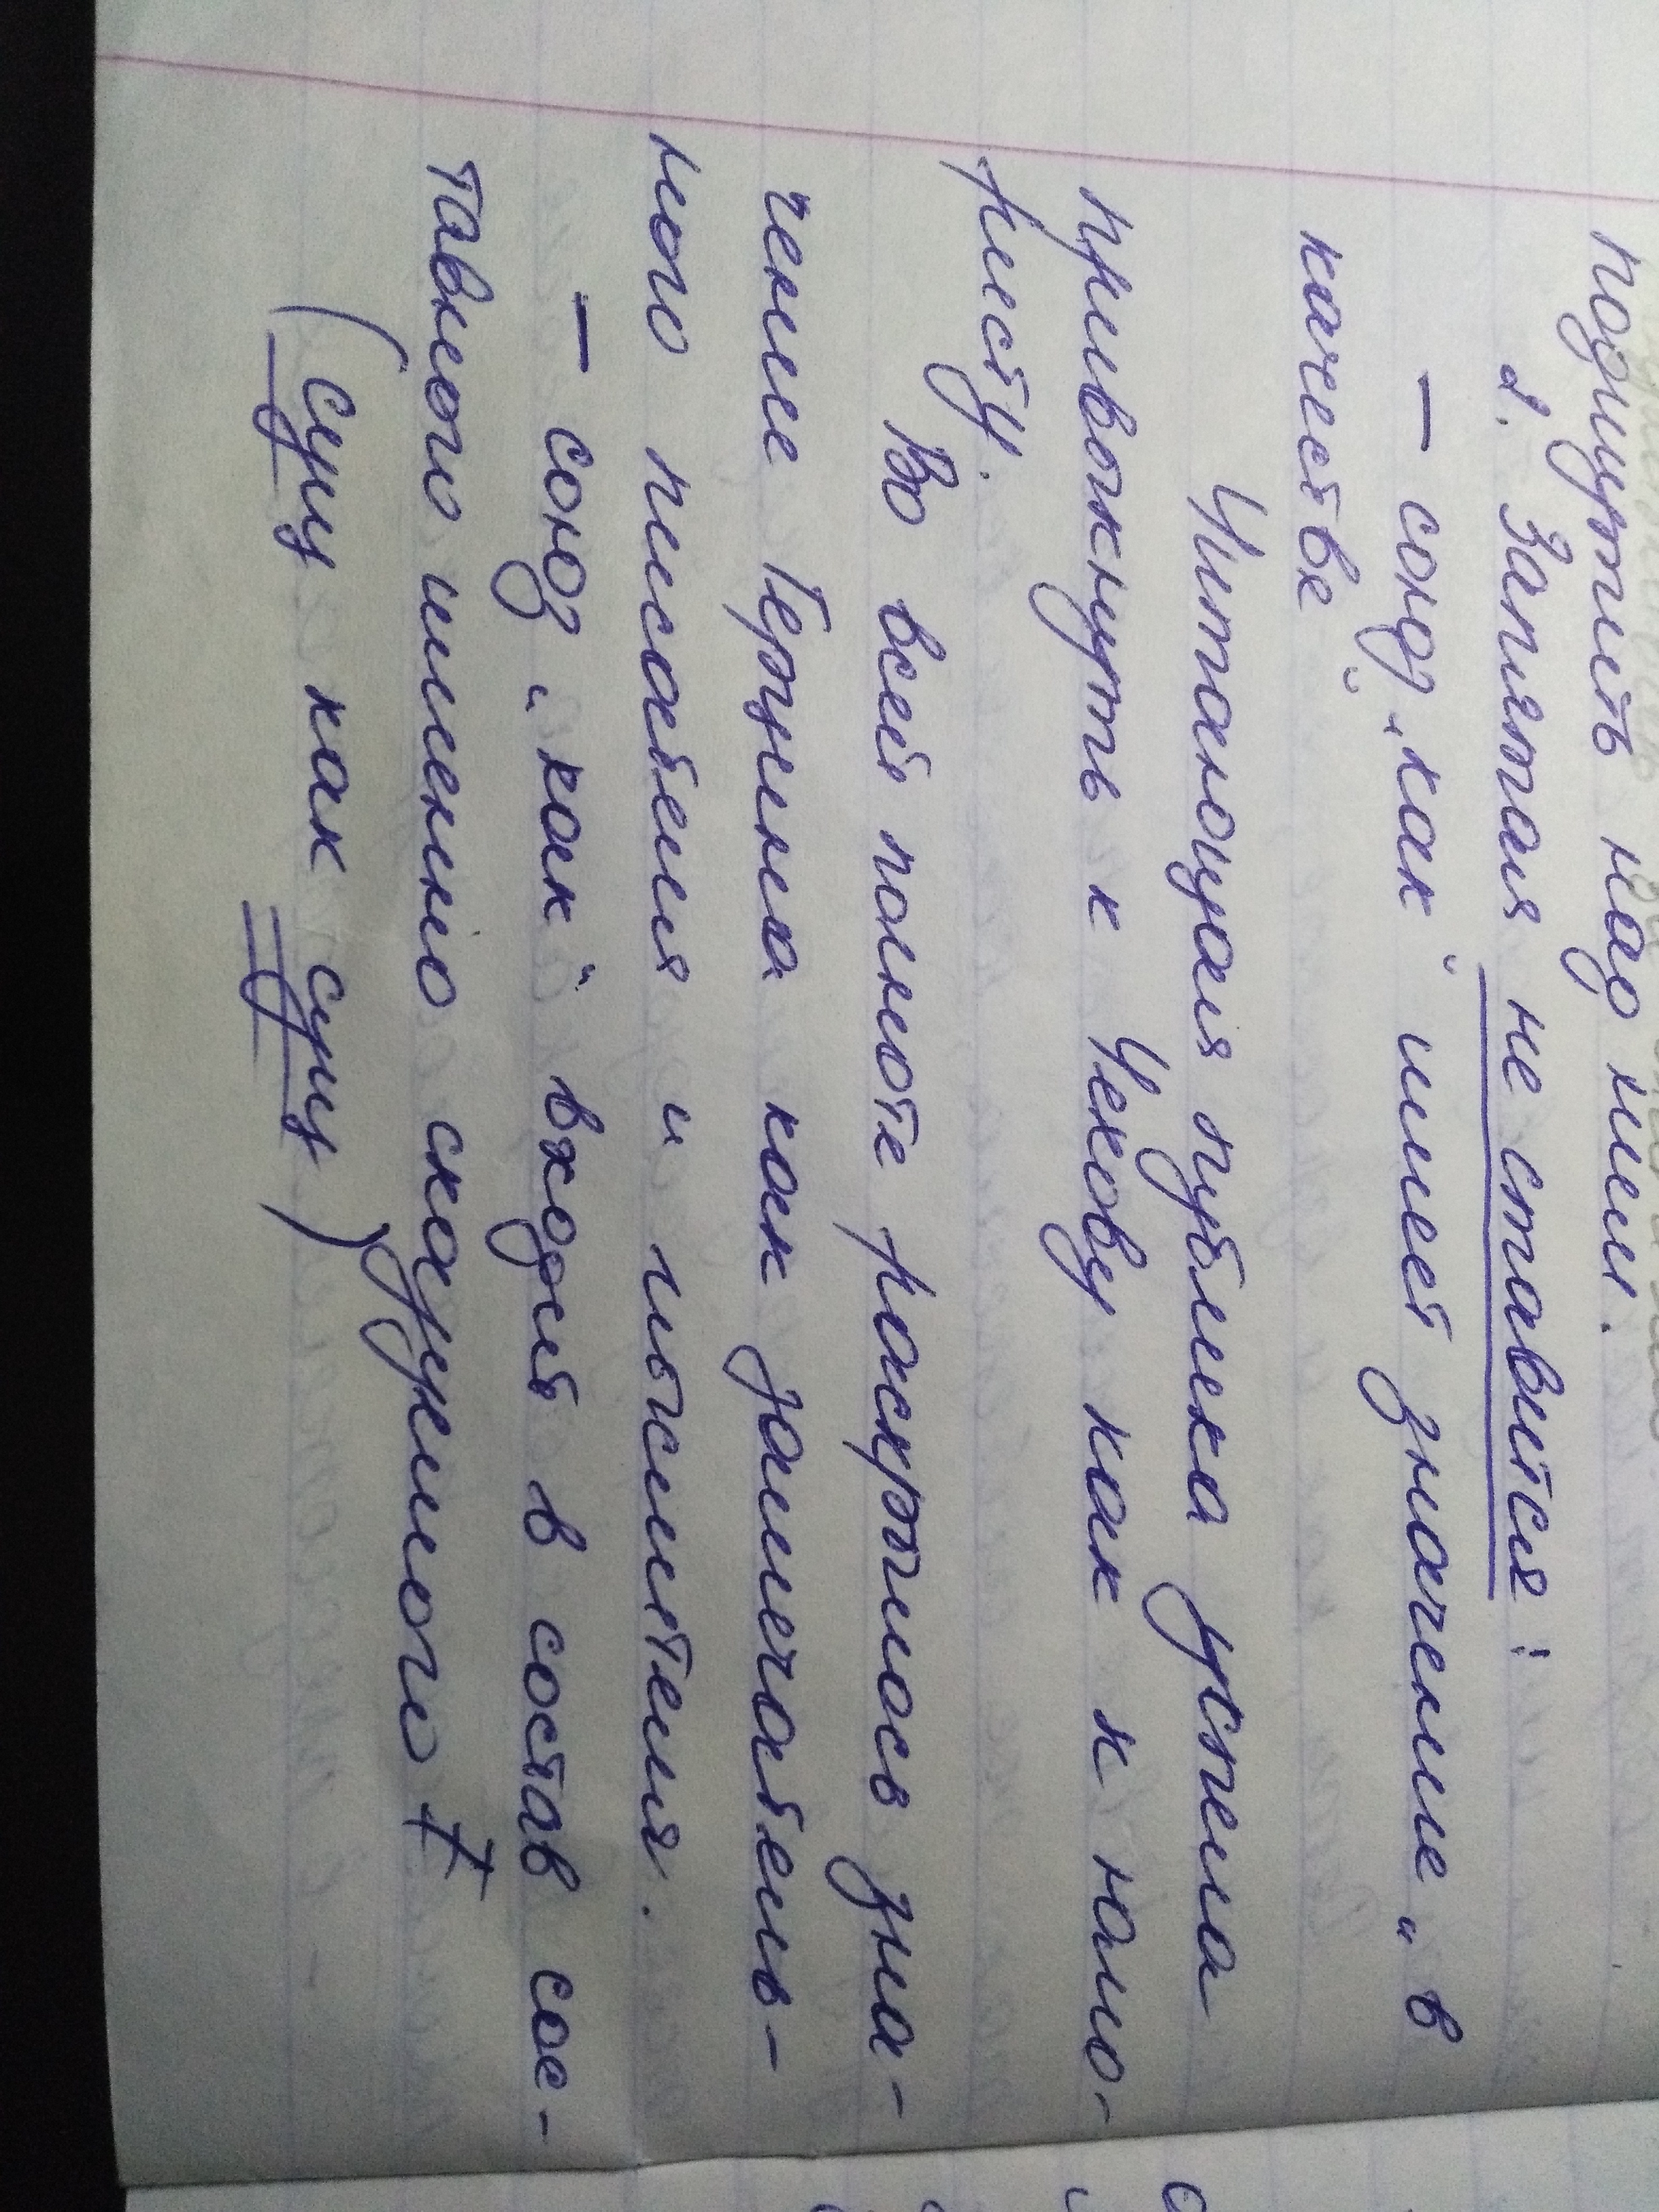 подшутить над ним.
2. Запятая не ставится:
— союз „как" имеет значение „в
качестве
Читающая публика успела
привыкнуть к Чехову как к юмо-
ристу.
Во всей полноте раскрылось зна-
чение Герцена как замечатель-
ного писателя и мыслителя.
— союз „как" входит в состав сос-
тавного именного сказуемого
(сущ как сущ)